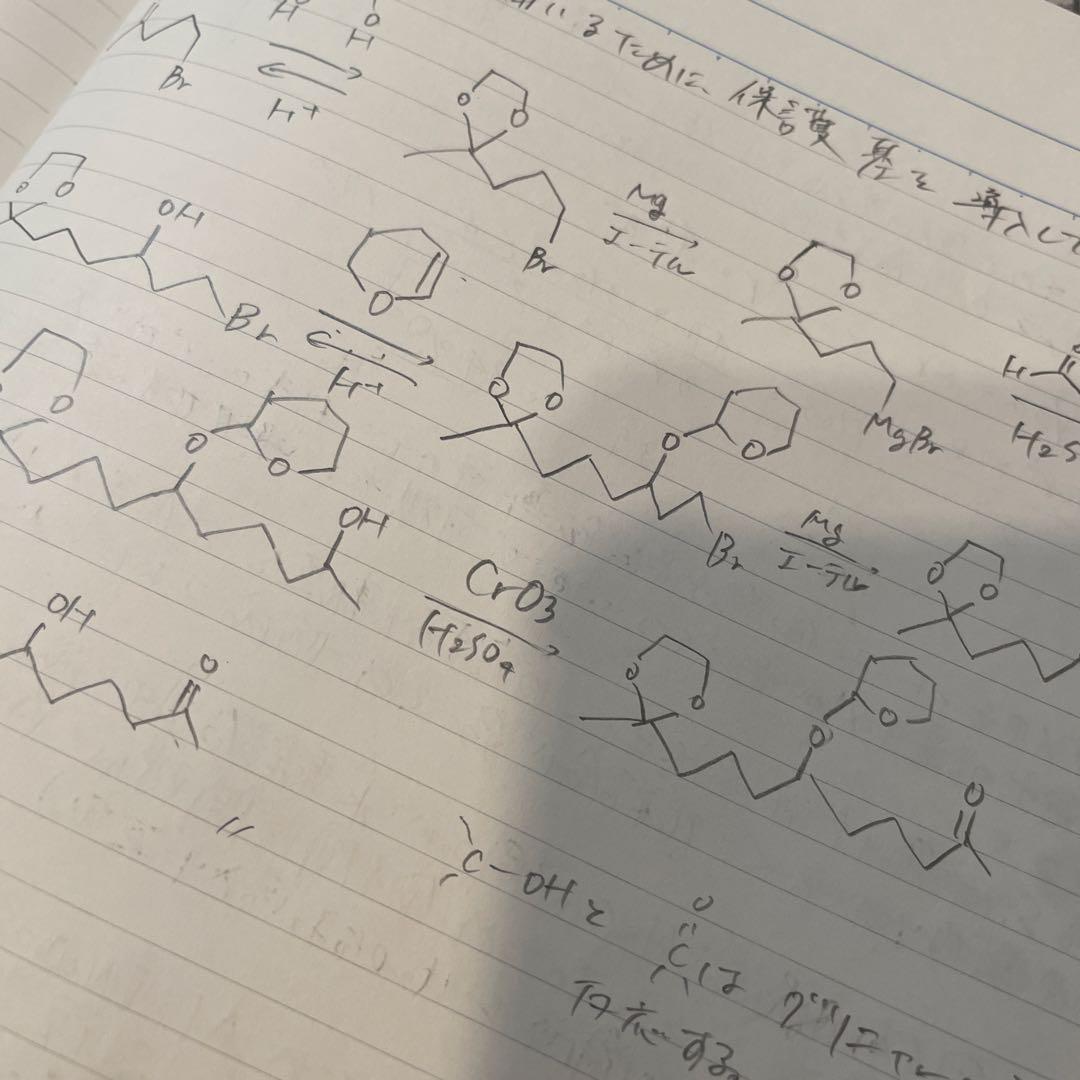 るために、保護基を導入して
H O
H
Br
H+
O O
Br
Mg
エーテル
O O
MgBr
H
H2S
O O
OH
Br
O
H+
O O
O
O
Br
Mg
エーテル
O O
O
O
O
OH
CrO3
H2SO4
O O
O
O
O
OH
O
〃
C-OH と
O
C は
反応する。